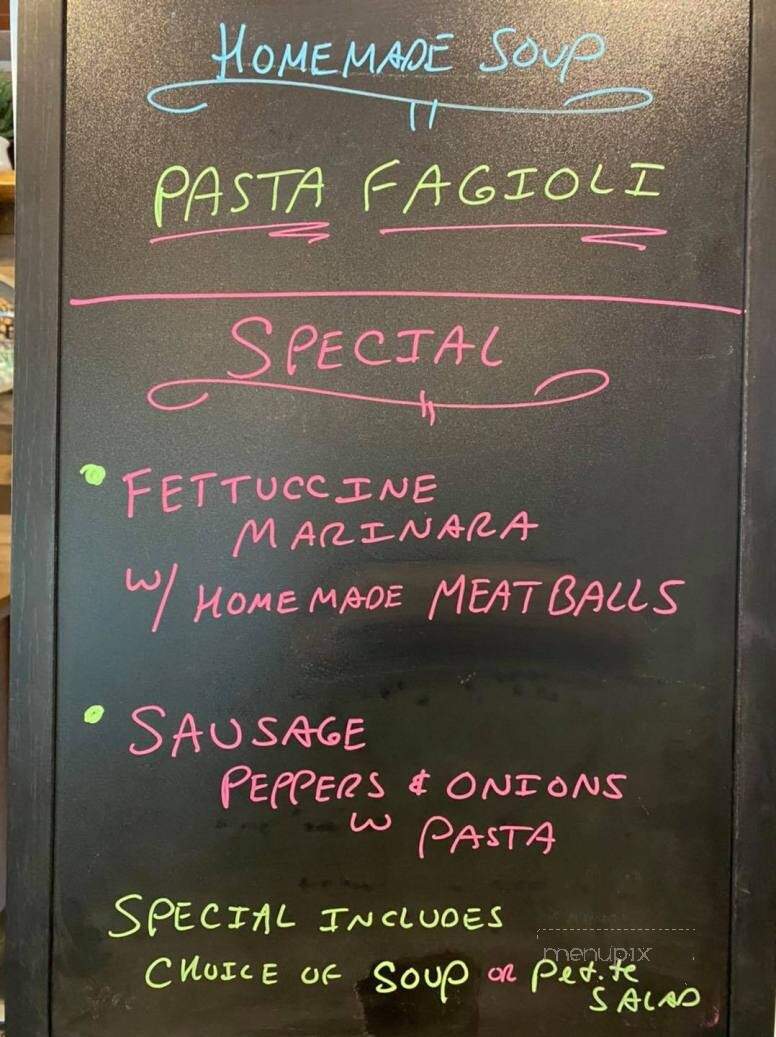 HOMEMADE SOUP
PASTA FAGIOLI
SPECIAL
• FETTUCCINE
MARINARA
W/ HOMEMADE MEATBALLS
• SAUSAGE
PEPPERS & ONIONS
W PASTA
SPECIAL INCLUDES
menupix
CHOICE OF SOUP OR Petite
SALAD